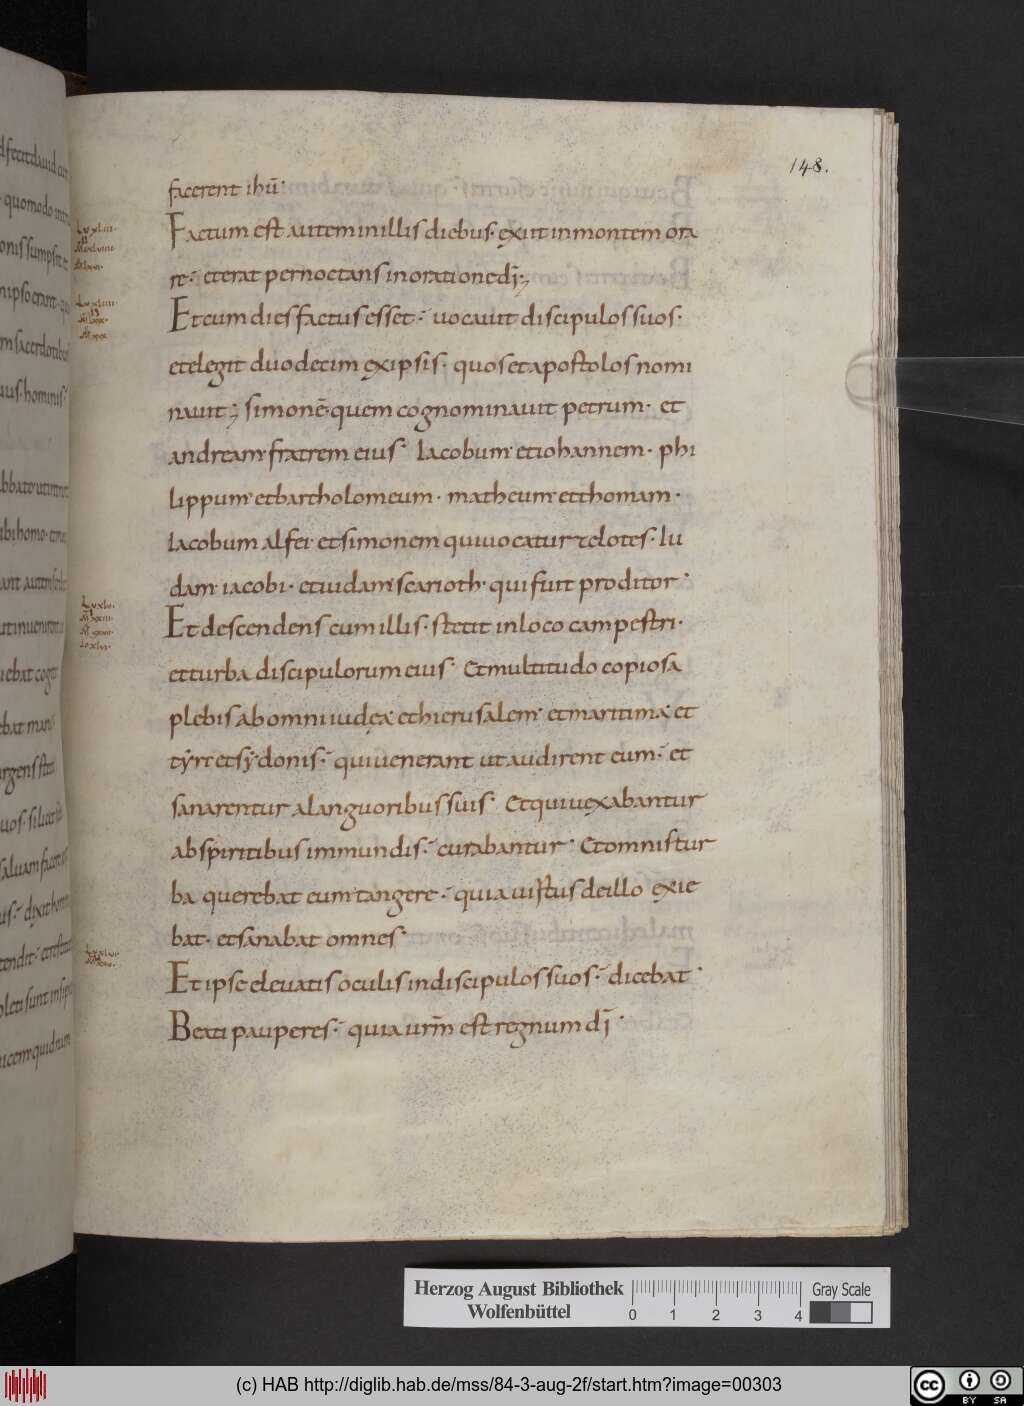 148.
facerent ihū·
Factum est autem in illis diebus· exiit in montem ora
re·̄ et erat pernoctans in oratione dī;
Et cum dies factus esset·̄ uocauit discipulos suos·
et elegit duodecim ęx ipsis· quos et apostolos nomi
nauit; simonē· quem cognominauit petrum· et
andream· fratrem eius· Iacobum· et iohannem· phi
lippum· et bartholomeum· matheum· et thomam·
Iacobum alfei· et simonem qui uocatur zelotes· Iu
dam· iacobi· et iudam· scarioth· qui fuit proditor·
Et descendens cum illis· stetit in loco campestri·
et turba discipulorum eius· Et multitudo copiosa
plebis ab omni iudęa· et hierusalem· et maritima· et
tẏri et sẏdonis·̄ qui uenerant ut audirent eum·̄ et
sanarentur a languoribus suis· Et qui uęxabantur
ab spiritibus immundis·̄ curabantur· Et omnis tur
ba querebat eum tangere·̄ quia uirtus de illo exie
bat· et sanabat omnes·
Et ipse eleuatis oculis in discipulos suos·̄ dicebat·
Beati pauperes·̄ quia urm̄ est regnum dī·
Herzog August Bibliothek
Wolfenbüttel
0 1 2 3 4
Gray Scale
(c) HAB http://diglib.hab.de/mss/84-3-aug-2f/start.htm?image=00303
cc BY SA